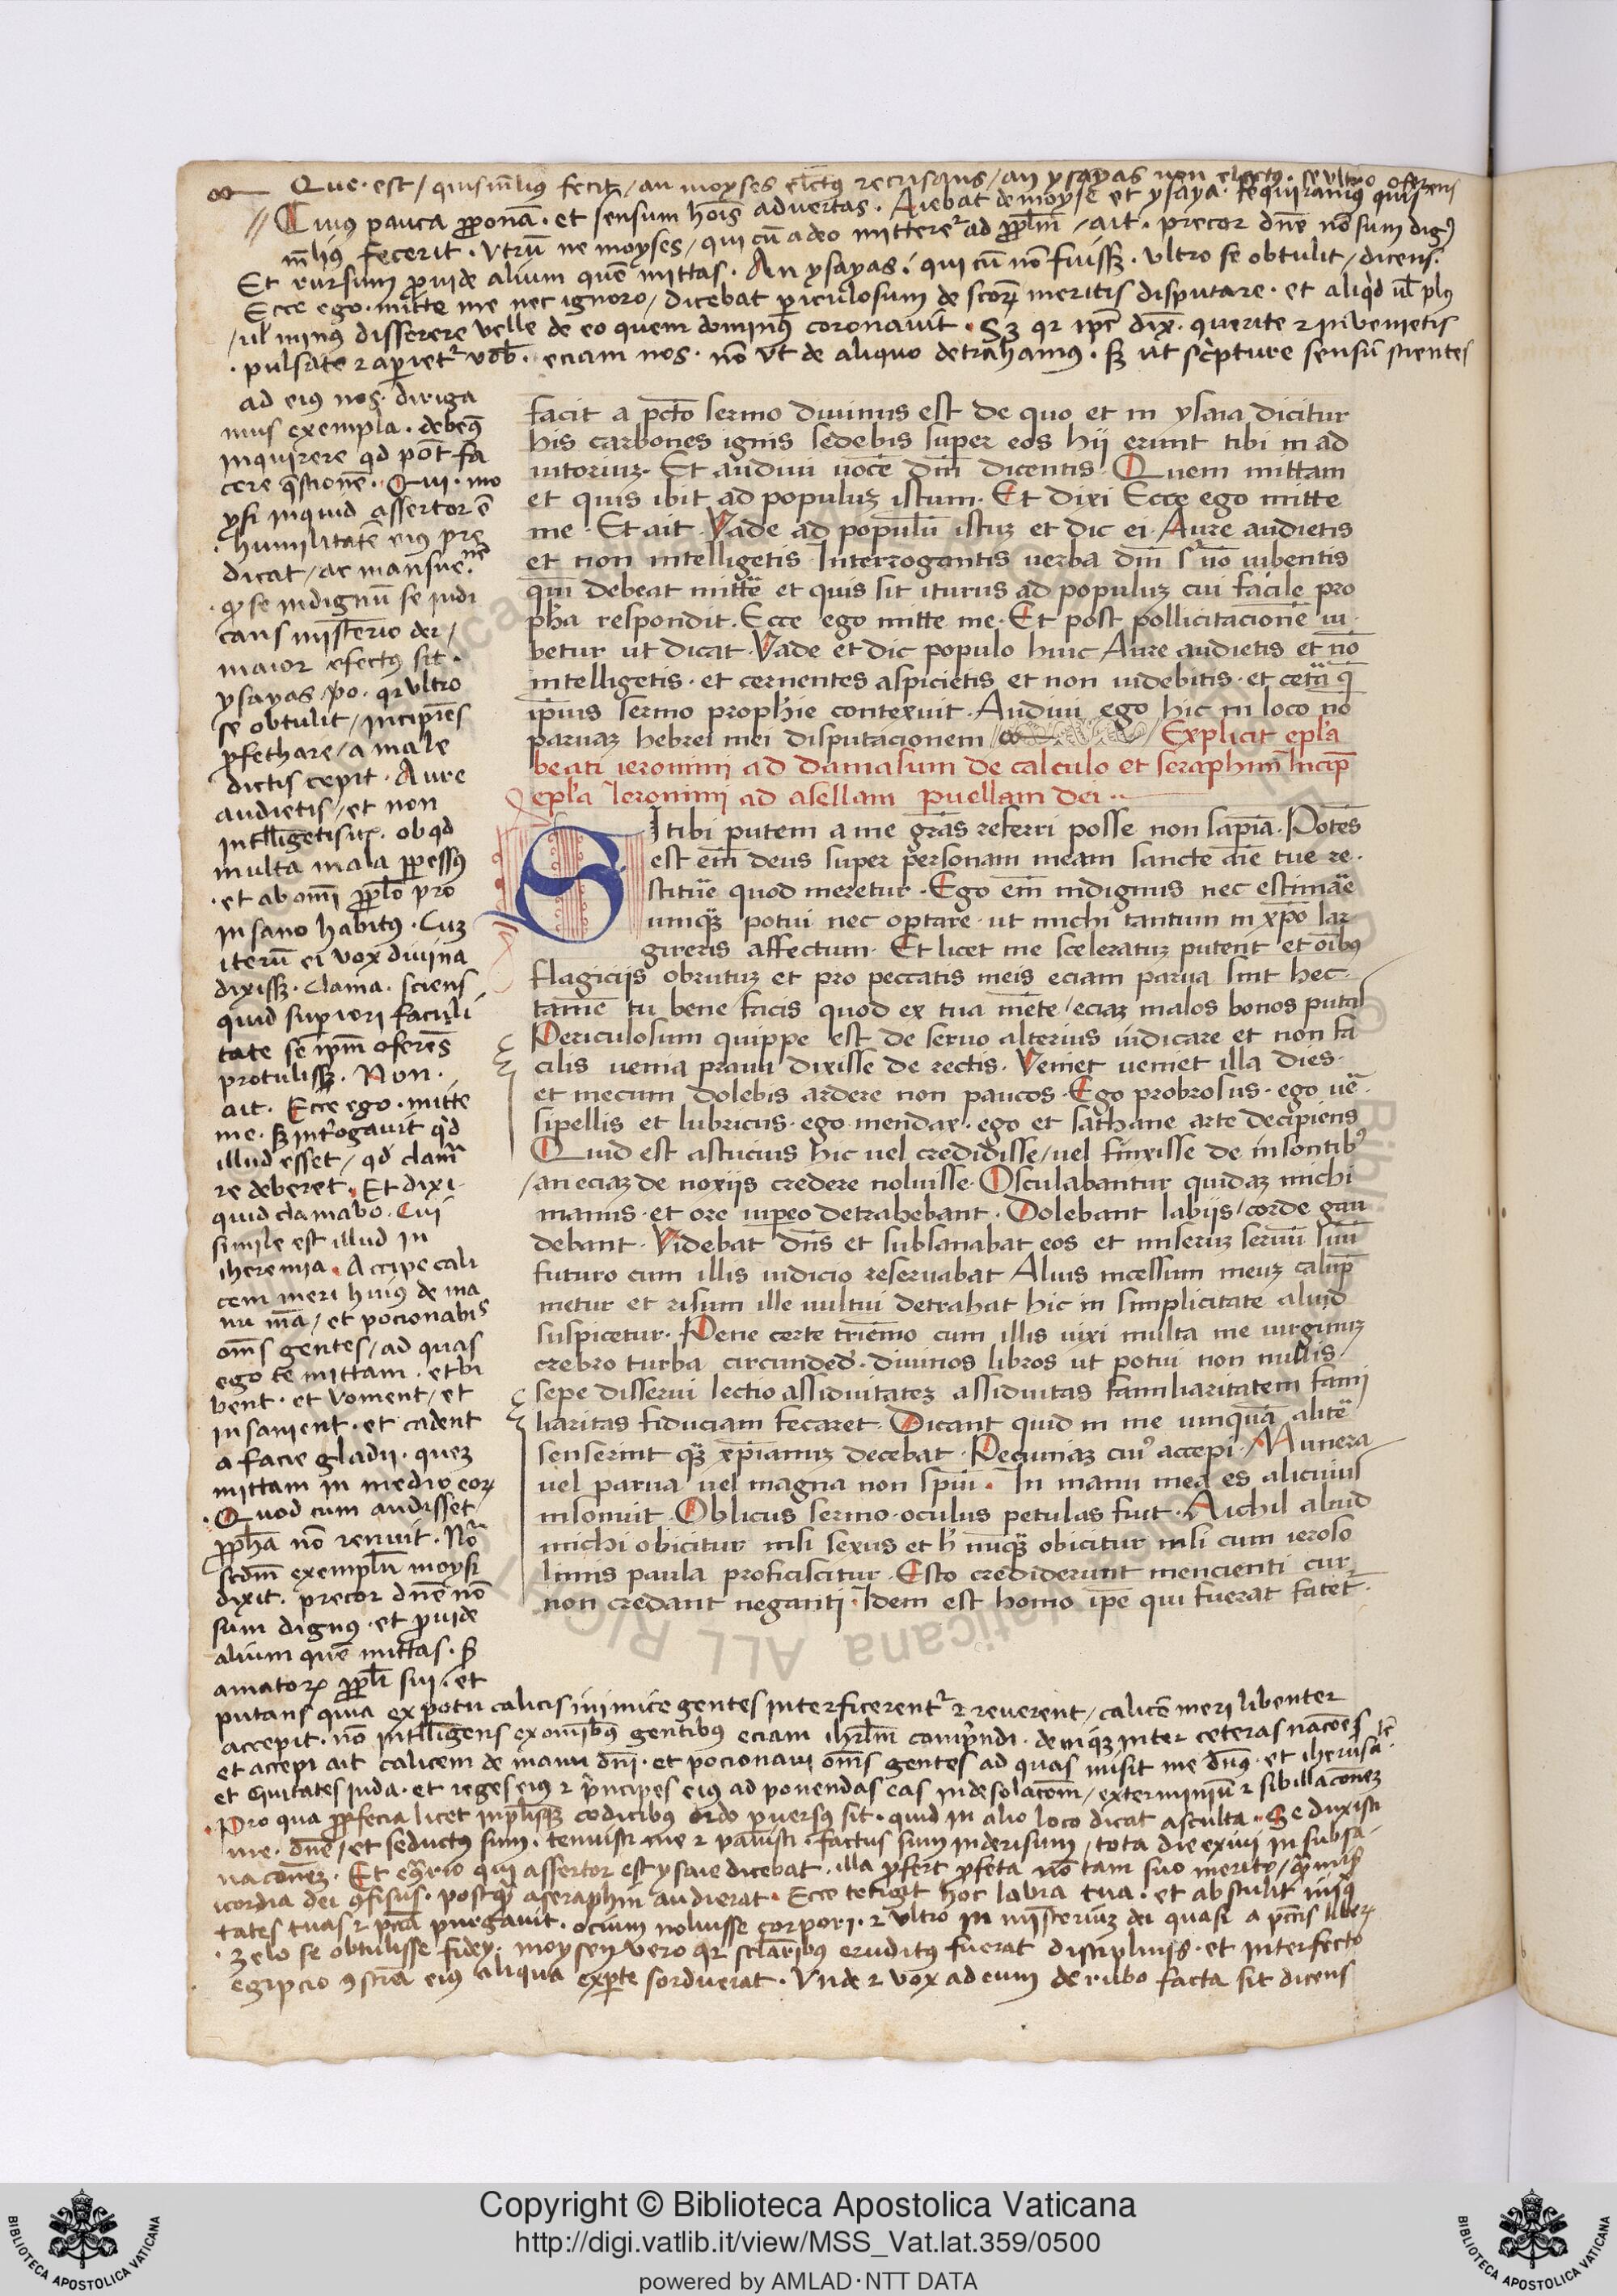 Que · est / quis mẽlius fecit / an moyses elctus recusans / an ysayas non electus · se ultro oferens
Cuius pauca ꝓponã · et sensum hois advertas · Aiebat de moyse et ysaya · requiramus quis
mẽlius fecerit · Utrũ ne moyses / qui cũ a deo mitteret᷑ ad ppłm / ait · precor dñe nõ sum dig9
Et rursum ꝓvide alium quẽ mittas · An ysayas · qui cũ nõ fuissꝫ · ultro se obtulit / dicens ·
Ecce ego · mitte me nec ignoro / dicebat periculosum de scorꝝ meritis disputare · et aliqd uł plus
/ uł minus disserere velle de eo quem dominus coronavit · Sꝫ qr ipẽ dix̃ · querite ⁊ invenietis
· pulsate ⁊ aperiet᷑ vob · eciam nos · nõ ut de aliquo detrahamus · sꝫ ut scripture sensũ scientes
ad eius nos · diriga
mus exempla · debeq̃
inquirere qd põt fa
cere questionẽ · Qui · mo
ysi inquid assertor ẽ
· humilitatẽ eius pre
dicat / ac mansue · nẽ
· qꝫ se indignũ se iudi
cans misterio dei /
maior efectus sit ·
ysayas / vo · qr ultro
se obtulit / incipiẽs
ꝓfethare / a male
dictis cepit · Aure
audietis / et non
intelligetis · ob qd
multa mala ꝓpessus
· et ab om̃i pplo pro
insano habitus · Cuꝫ
iterũ ei vox divina
dixissꝫ · clama · sciens
quid superiori facili
tate se ipm oferẽs
protulissꝫ · Non ·
ait · Ecce ego · mitte
me · sꝫ introgavit qd
illud esset / qd clama
re deberet · Et dixi ·
quid clamabo · Cui
simile est illud in
iheremia · Accipe cali
cem meri huius de ma
nu mea / et pocionabis
oms gentes / ad quas
ego te mittam · et bi
bent · et voment / et
insanient · et cadent
a facie gladii · queꝫ
mittam in medio eoꝝ
· Quod cum audisset
ꝓpha nõ renuit · Nõ
scdm exemplũ moysi
dixit · precor dñe nõ
sum dignus · et ꝓvide
alium quẽ mittas · Sꝫ
amatorꝫ ppłi sui · et
putans quia ex potu calicis inimice gentes interficerent᷑ ⁊ ruerent / calicẽ meri libenter
accepit · nõ intelligens ex omibus gentibus eciam ihrłm comprendi · deniqꝫ inter ceteras naciões
et accepi ait calicem de manu dñi · et pocionavi oms gentes ad quas misit me dñus · et iherusalẽ
et civitates iuda · et reges eius ⁊ principes eius ad ponendas eas in desolaciom / exterminiũ ⁊ sibillacionẽꝫ
· Pro qua ꝓphecia licet in plisqꝫ codicibus ordo ꝑversus sit · quid in alio loco dicat asculta · Seduxisti
me · dñe / et seductus sum · tenuisti me ⁊ potuisti · factus sum in derisum / tota die exivi in subsa
nacioneꝫ · Et econtrario qui assertor est ysaie dicebat · illa ꝓfert ꝓfeta nõ tam suo merito / quã mis
icordia dei cõfisus · postqꝫ a seraphin audierat · Ecce tetigit hoc labra tua · et abstulit iniqui
tates tuas ⁊ pccã purgavit · ocium noluisse corpori · ⁊ ultro in misteriuꝫ dei quasi a pcctis liber
· Zelo se obtulisse fidey · moysen vero qr seclaribus eruditus fuerat disciplinis · et interfecto
egipcio cõscia eius aliqua ex parte sorduerat · Unde ⁊ vox ad eum de rubo facta sit dicens
facit a pcto sermo divinus est de quo et in ysaia dicitur
his carbones ignis sedebis super eos hii erunt tibi in ad
iutoriuꝫ · Et audivi vocẽ dñi dicentis · Quem mittam
et quis ibit ad populuꝫ istum · Et dixi Ecce ego mitte
me · Et ait · Vade ad populũ istuꝫ et dic ei · Aure audietis
et non intelligetis · Interrogantis verba dñi s᷑ nõ iubentis
quẽ debeat mittẽ et quis sit iturus ad populuꝫ cui facile pro
pha respondit · Ecce ego mitte me · Et post pollicitacionẽ iu
betur ut dicat · Vade et dic populo huic Aure audietis et nõ
intelligetis · et cernentes aspicietis et non videbitis · et cetã q̃
ipius sermo prophie contexuit · Audivi ego hic in loco nõ
parvaꝫ hebrei mei disputacionem / Explicit epła
beati ieronimi ad damasum de calculo et seraphin Incip̃
epła Ieronimi ad asellam puellam dei ··
SI tibi putem a me grãs referri posse non sapiã · Potẽs
est em̃ deus super personam meam sancte aĩe tue re ·
stituẽ quod meretur · Ego em̃ indignus nec estimãe
umqꝫ potui nec optare · ut michi tantum in xp̃o lar
gireris affectum · Et licet me sceleratuꝫ putent et oĩbus
flagiciis obrutuꝫ et pro peccatis meis eciam parva sint hec ·
tamẽ tu bene facis quod ex tua mẽte / eciaꝫ malos bonos putas
Periculosum quippe est de servo alterius iudicare et non fa
cilis venia prava dixisse de rectis · Veniet veniet illa dies ·
et mecum dolebis ardere non paucos · Ego probrosus · ego vẽ ·
sipellis et lubricus · ego mendax · ego et sathane arte decipiens
Quid est astucius hic vel credidisse / vel finxisse de insontib9
/ an eciaꝫ de noxiis credere noluisse · Osculabantur quidaꝫ michi
manus · et ore viꝑeo detrahebant · Dolebant labiis / corde gau
debant · Videbat dñs et subsanabat eos et miseruꝫ servũ suũ
futuro cum illis iudicio reservabat Alius incessum meuꝫ calup̃
metur et risum ille vultui detrahat hic in simplicitate aluid
suspicetur · Pene certe triẽmo cum illis vixi multa me virginuꝫ
crebro turba circundeđ · divinos libros ut potui non nullis ·
sepe disserui lectio assiduitateꝫ assiduitas familiaritatem fami
liaritas fiduciam fecaret · Dicant quid in me umquã alitẽ
senserint qꝫ xp̃ianuꝫ decebat · Pecuniaꝫ cui9 accepi · Munera
vel parva vel magna non sp̃vi · In manu mea es alicuius
insonuit · Oblicus sermo · oculus petulas fuit · Nichil aluid
michi obicitur nisi sexus et h̃ nũqꝫ obicitur nisi cum ieroso
limis paula proficiscitur · Esto crediderunt mencienti cur
non credant neganti · Idem est homo ipẽ qui fuerat fatet᷑ ·
Copyright © Biblioteca Apostolica Vaticana
http://digi.vatlib.it/view/MSS_Vat.lat.359/0500
powered by AMLAD·NTT DATA
BIBLIOTECA APOSTOLICA VATICANA
BIBLIOTECA APOSTOLICA VATICANA